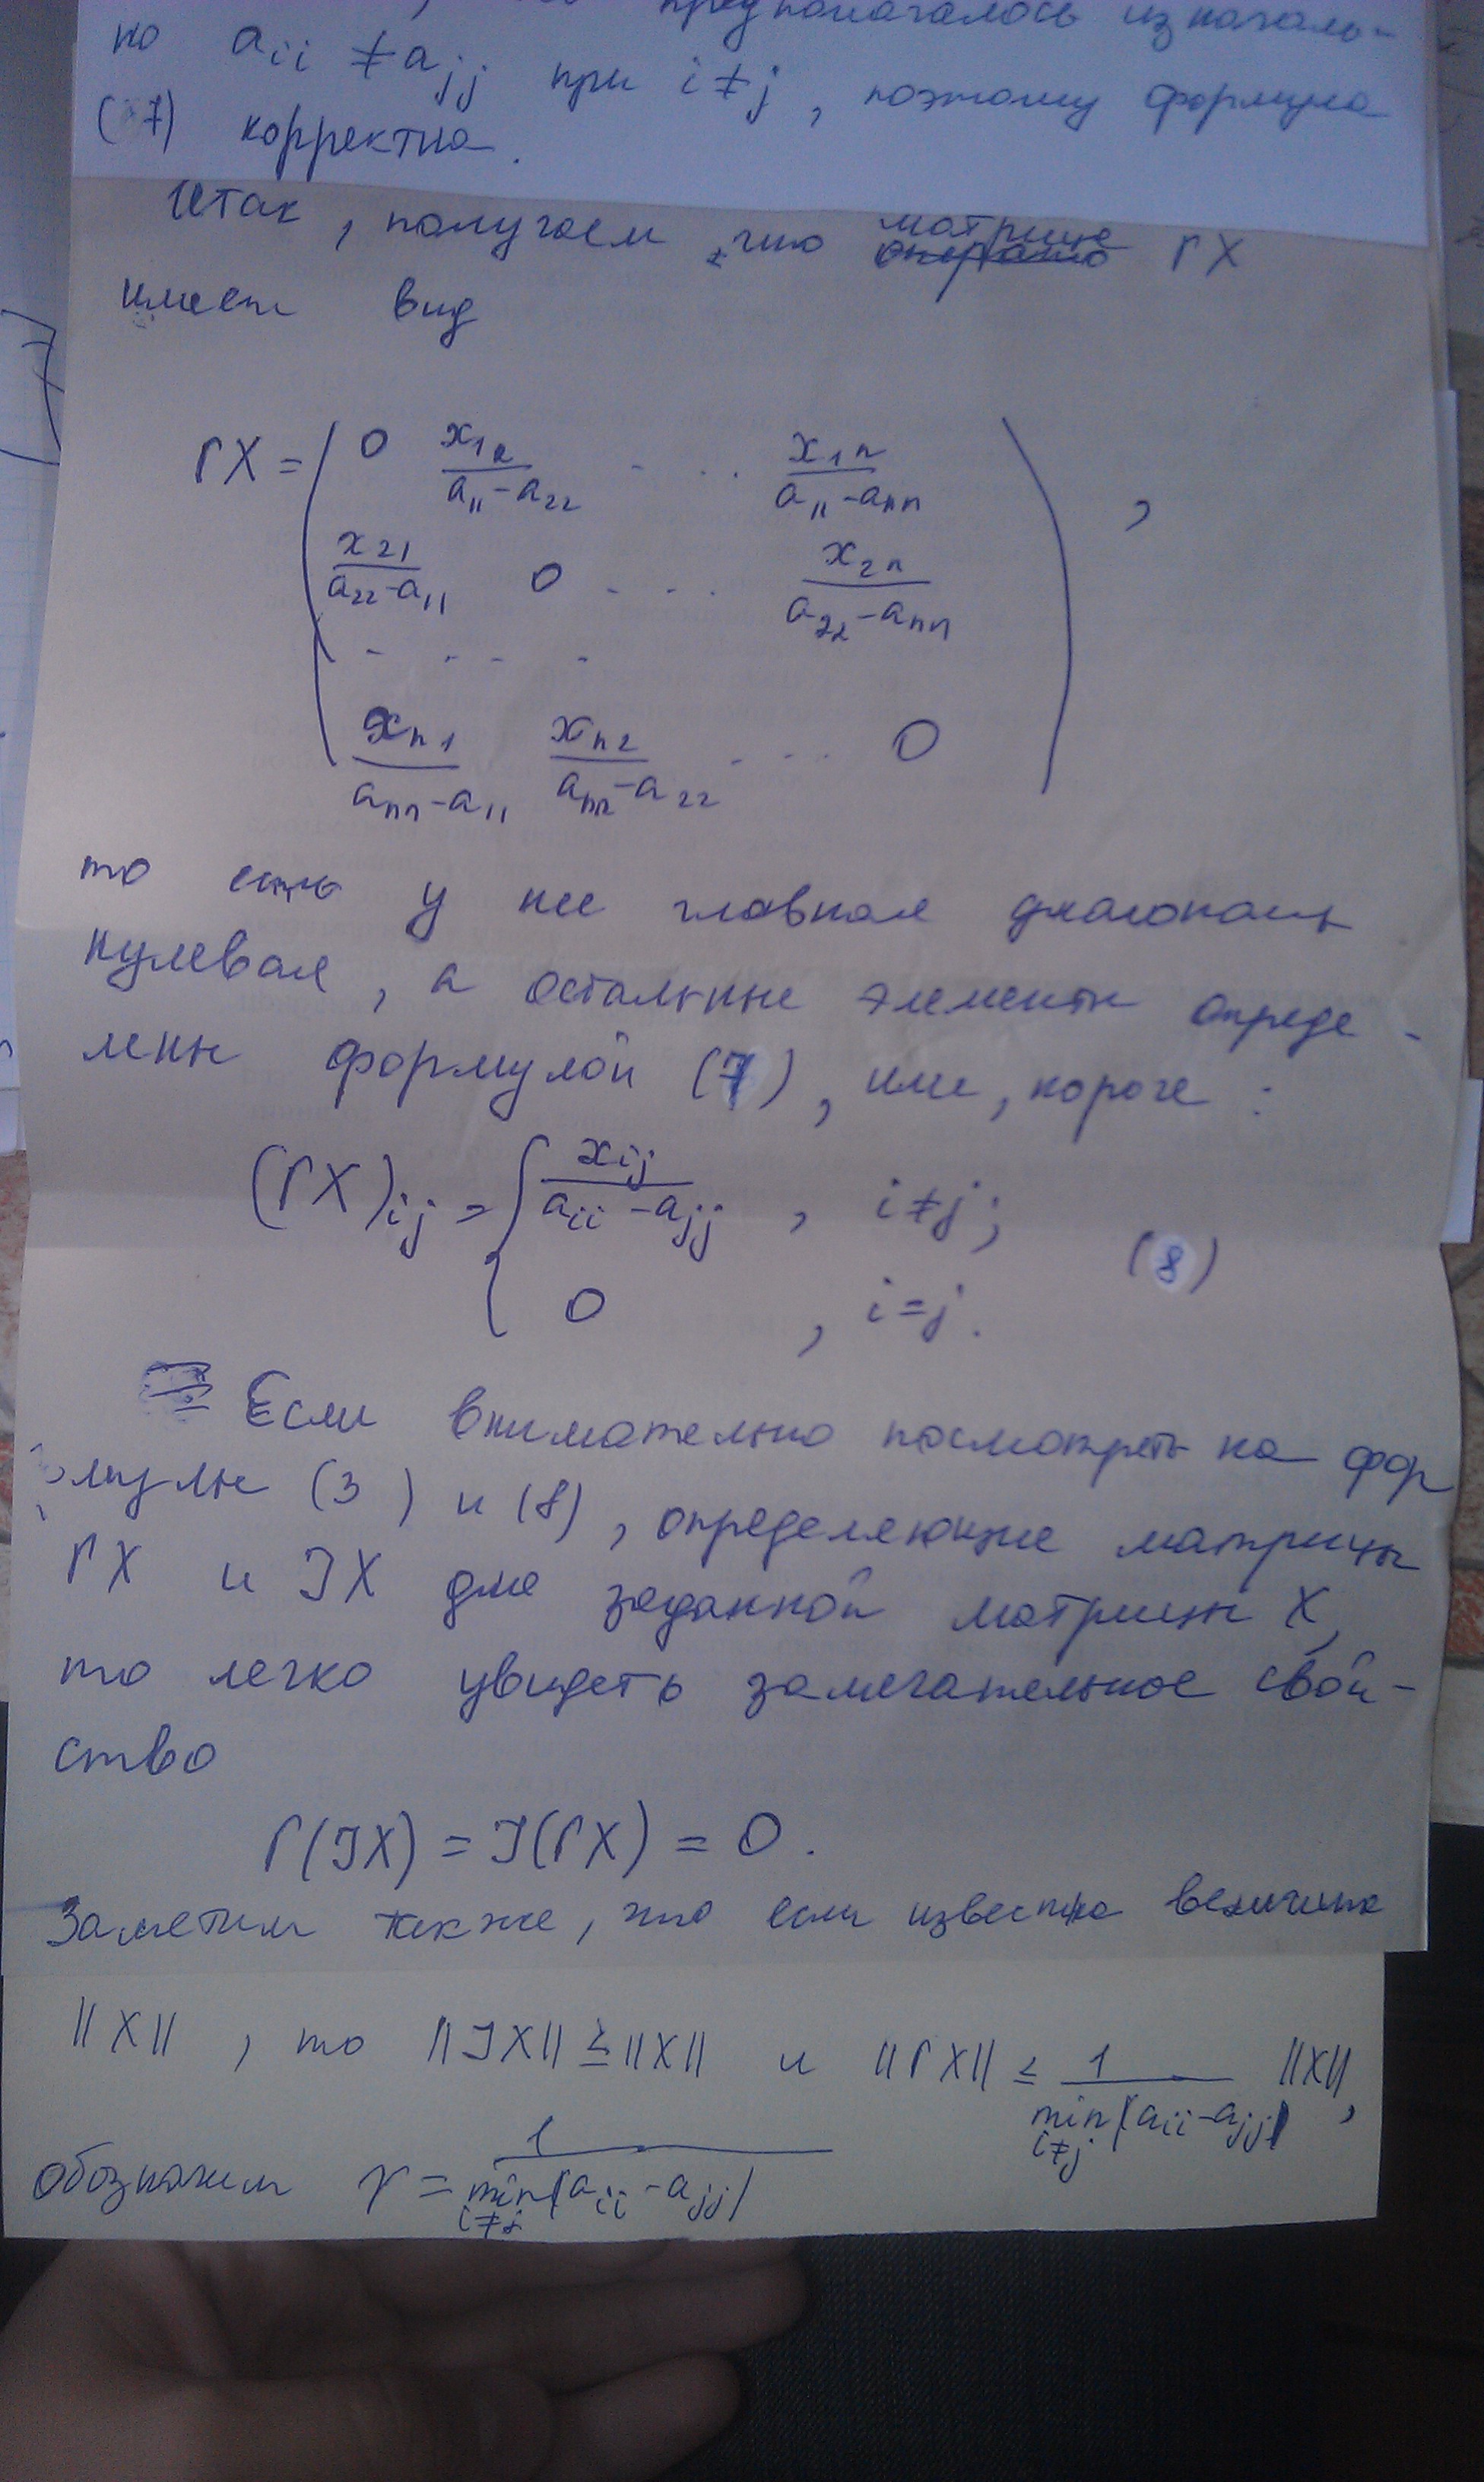 предполагалось изначаль-
но a_{ii} ≠ a_{jj} при i ≠ j, поэтому формула
(7) корректна.
Итак, получаем, что матрица ΓX
имеет вид
ΓX = ( 0 x_{12}/(a_{11}-a_{22}) ... x_{1n}/(a_{11}-a_{nn})
x_{21}/(a_{22}-a_{11}) 0 ... x_{2n}/(a_{22}-a_{nn})
. . . .
x_{n1}/(a_{nn}-a_{11}) x_{n2}/(a_{nn}-a_{22}) ... 0 ) ,
то есть у нее главная диагональ
нулевая, а остальные элементы опреде-
лены формулой (7), или, короче:
(ΓX)_{ij} = { x_{ij}/(a_{ii}-a_{jj}) , i ≠ j;
0 , i = j. (8)
Если внимательно посмотреть на фор
мулы (3) и (8), определяющие матрицы
ΓX и JX для заданной матрицы X,
то легко увидеть замечательное свой-
ство
Γ(JX) = J(ΓX) = 0.
Заметим также, что если известна величина
||X||, то ||JX|| ≤ ||X|| и ||ΓX|| ≤ 1/(min_{i≠j}|a_{ii}-a_{jj}|) ||X||,
обозначим γ = 1/(min_{i≠j}|a_{ii}-a_{jj}|)